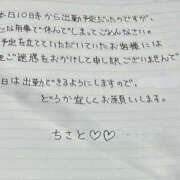 本日10日夜から出勤予定だったのですが、
な用事で休んでしまってごめんなさい。
予定を立てていただいていたお客様には
ご迷惑をおかけして申し訳ございませんで
日は出勤できるようにしますので、
どうか宜しくお願いします。
ちさと♡♡